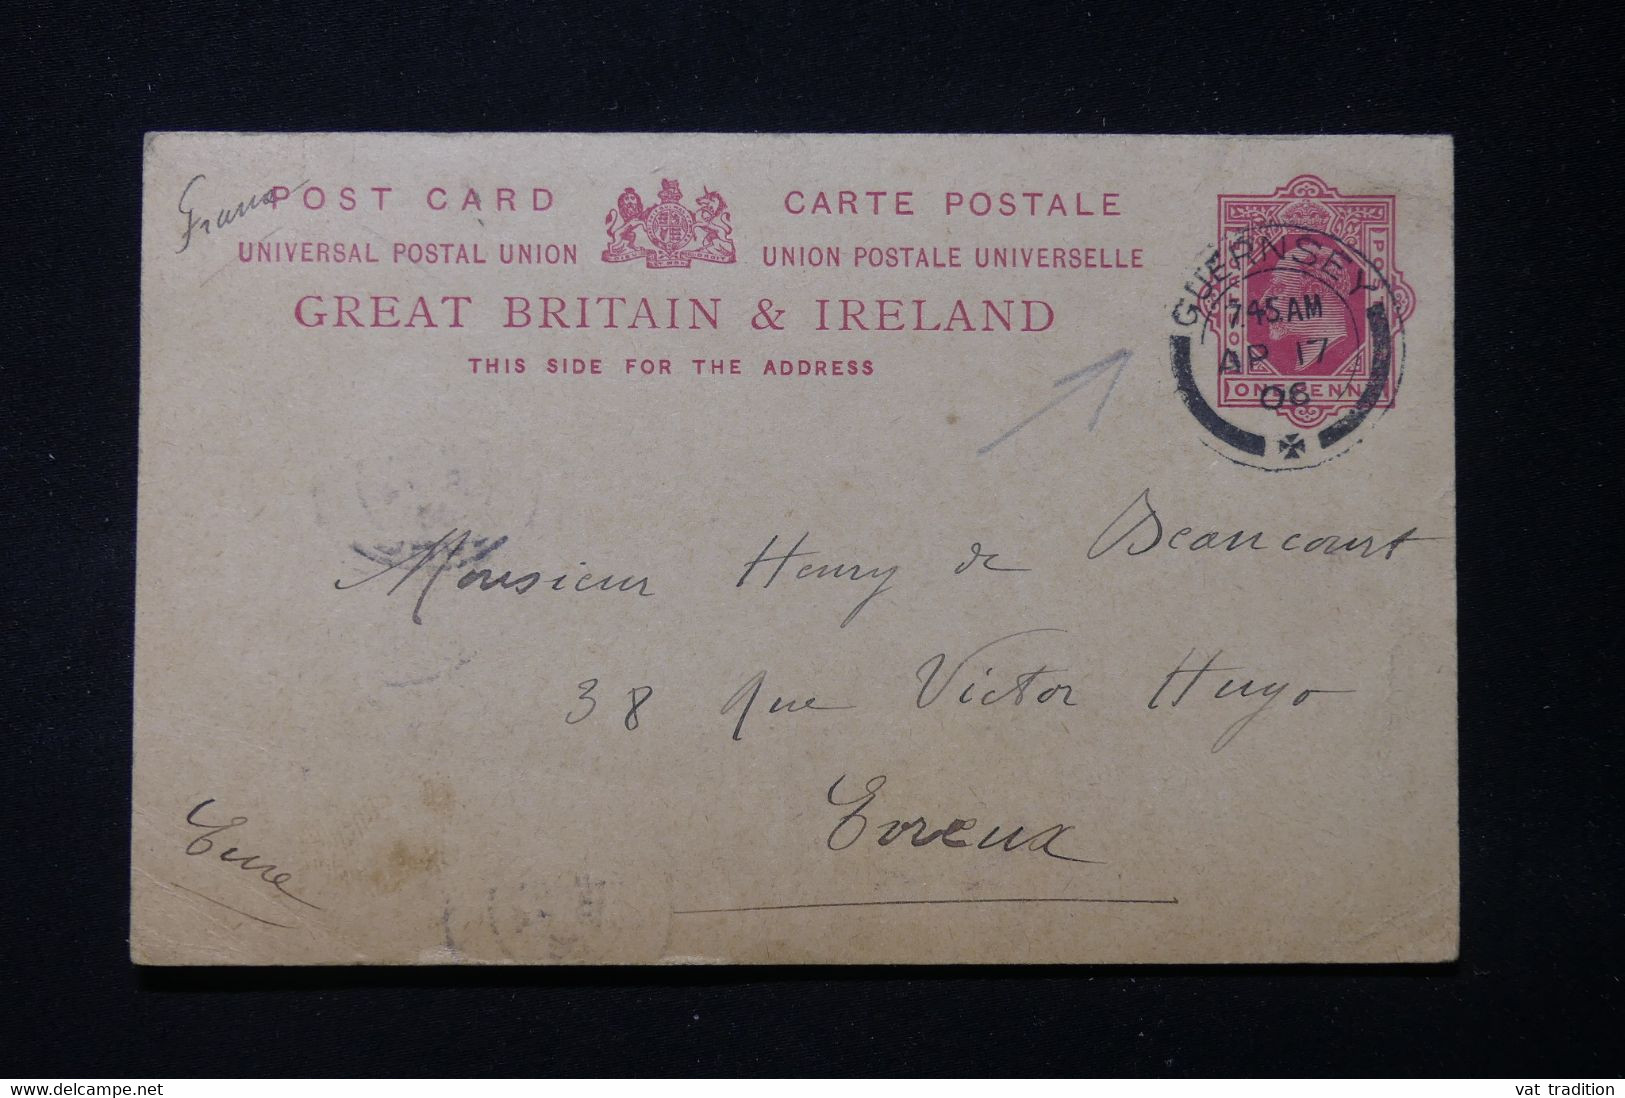 France
POST CARD CARTE POSTALE
UNIVERSAL POSTAL UNION UNION POSTALE UNIVERSELLE
GREAT BRITAIN & IRELAND
THIS SIDE FOR THE ADDRESS
GUERNSEY
7.45 AM
AP 17
06
ONE PENNY
Monsieur Henry de Beancourt
38 Rue Victor Hugo
Evreux
Eure
www.delcampe.net
vat_tradition